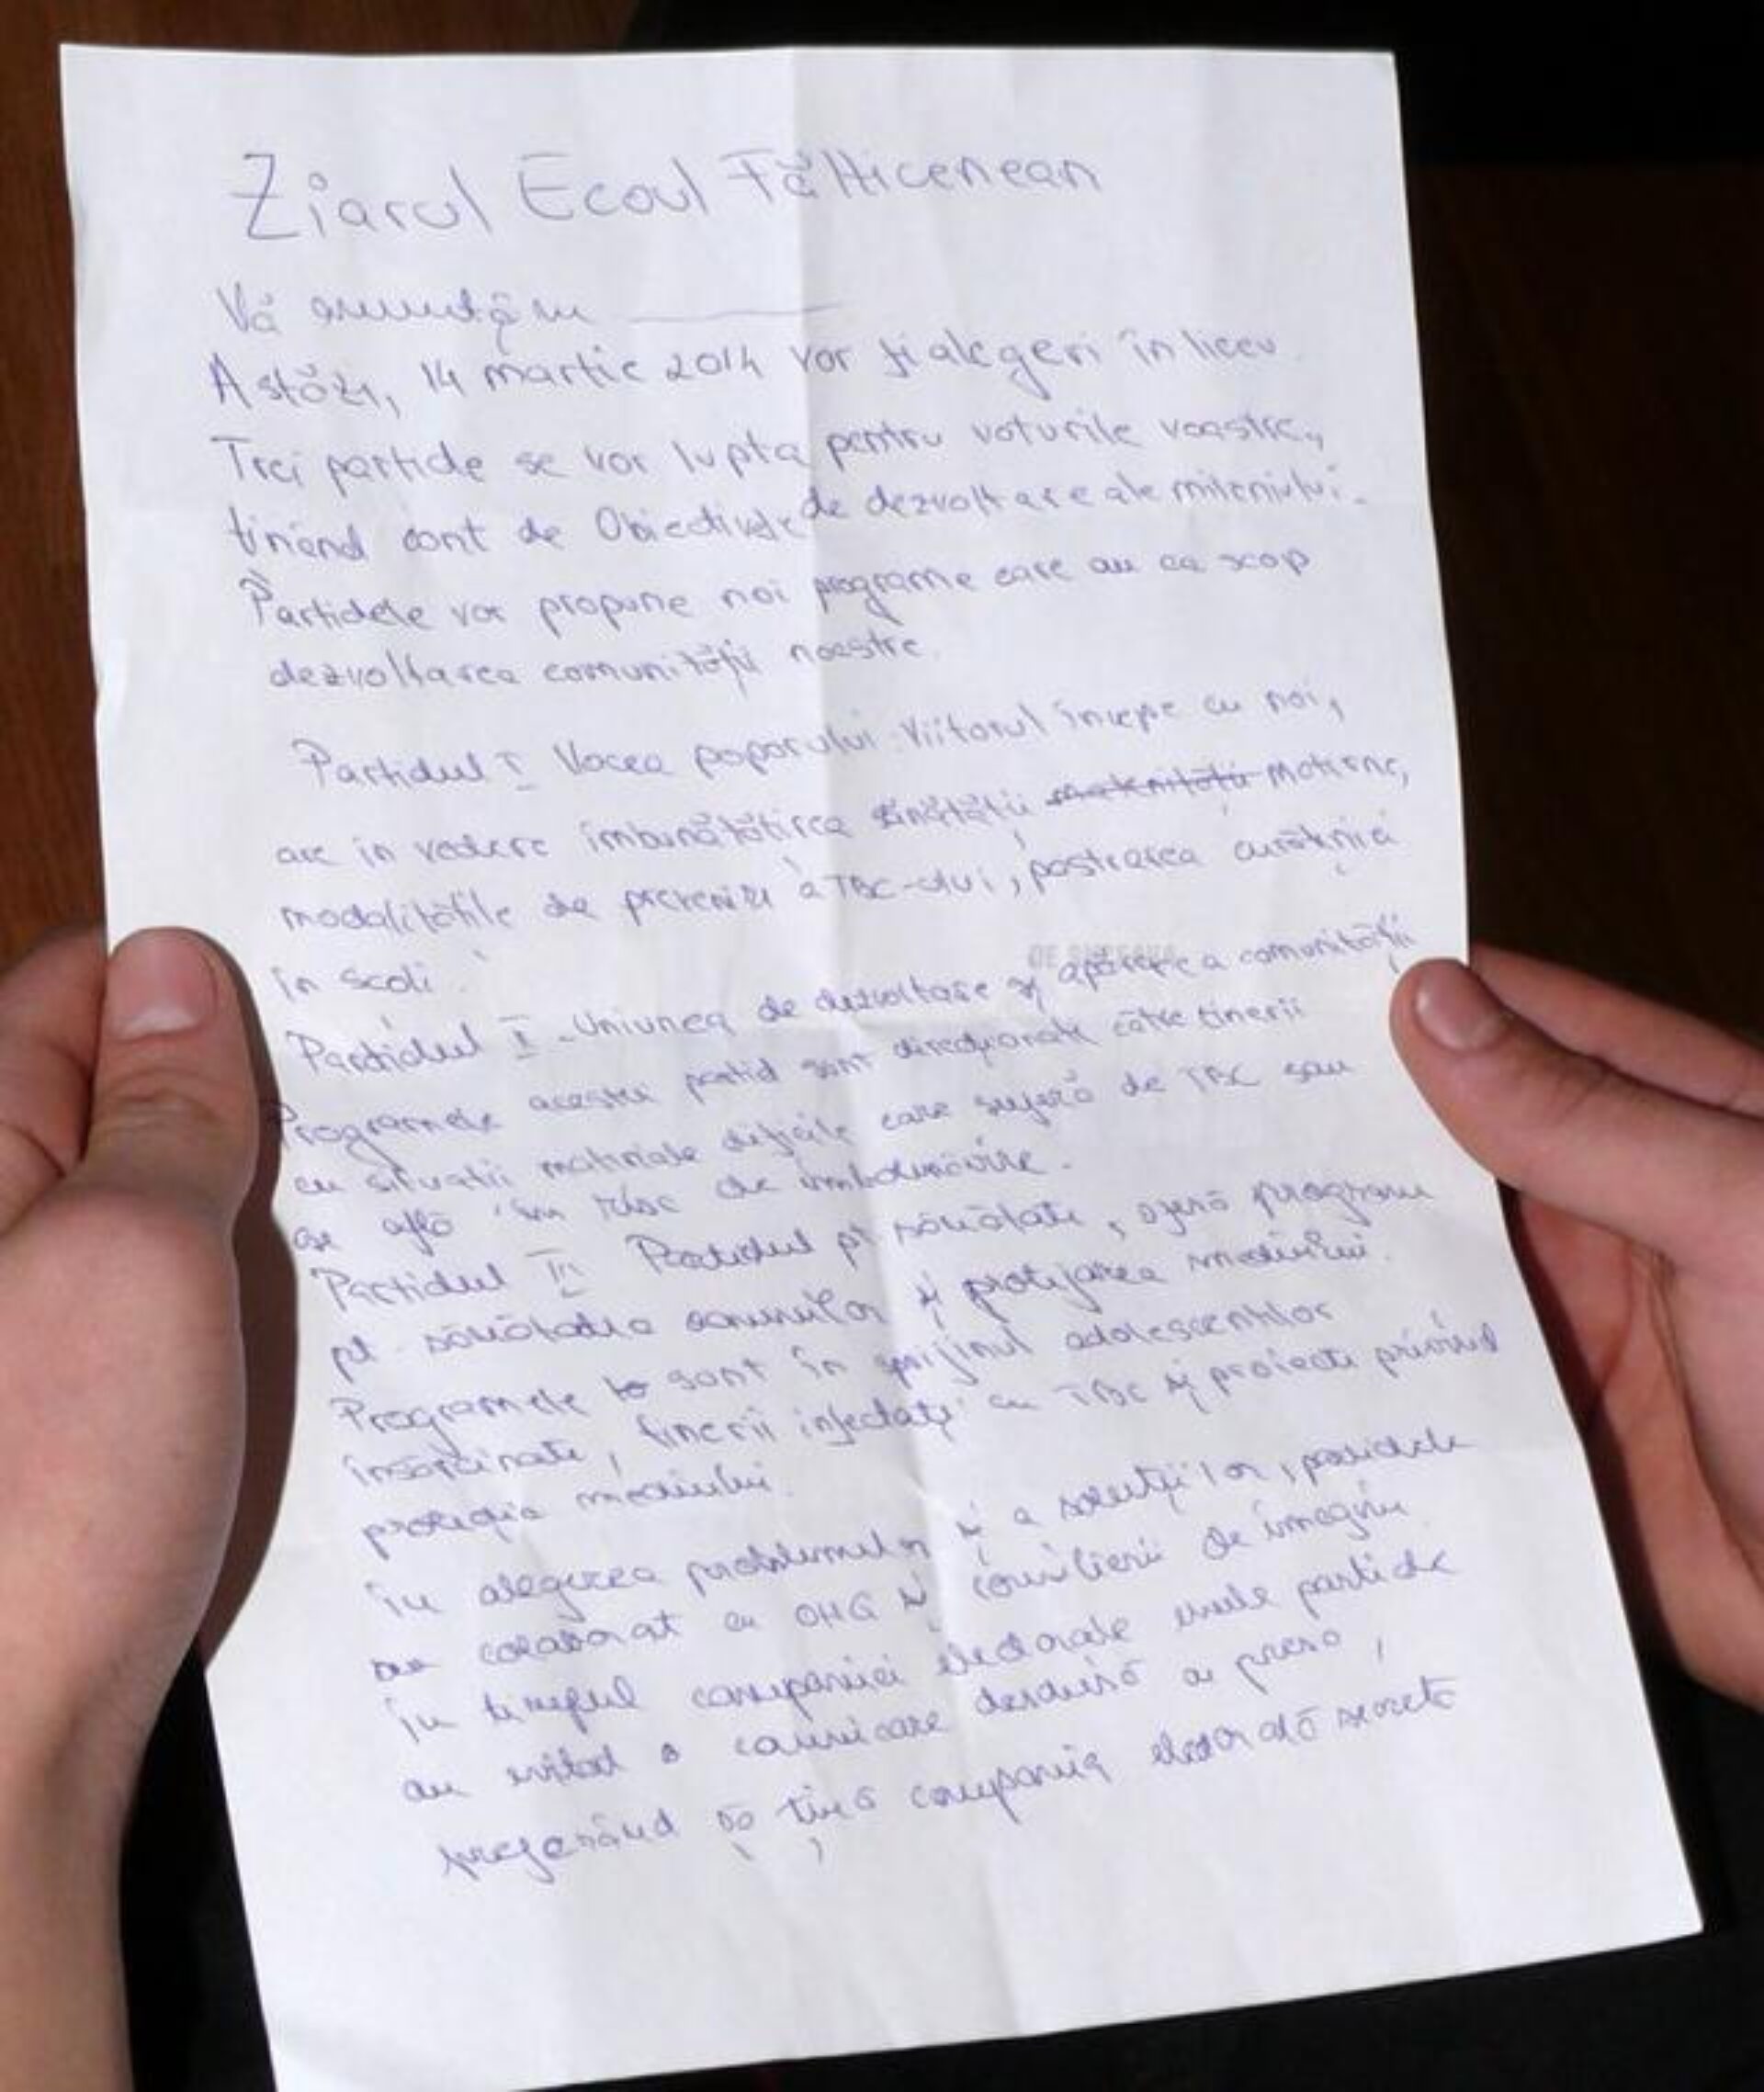 Ziarul Ecoul Fălticenean
Vă anunțăm
Astăzi, 14 martie 2014 vor fi alegeri în liceu.
Trei partide se vor lupta pentru voturile voastre,
tinând cont de Obiectivele de dezvoltare ale mileniului.
Partidele vor propune noi programe care au ca scop
dezvoltarea comunității noastre.
Partidul I Vocea poporului Viitorul începe cu noi,
are in vedere îmbunătățirea sănătății materne,
modalitățile de prevenire a TBC-ului, pastrarea curățeniei
în școli.
DE
Partidul II - Uniunea de dezvoltare și apărare a comunității
Programele acestui partid sunt direcționate către tinerii
cu situații materiale dificile care suferă de TBC sau
se află în risc de îmbolnăvire.
Partidul III Partidul pt sănătate, oferă programe
pt. sănătatea oamenilor și protejarea mediului.
Programele sunt în sprijinul adolescentilor
însărcinate, tinerii infectați cu TBC și proiecte privind
protecția mediului.
În alegerea problemelor și a soluțiilor, partidele
au colaborat cu ONG și consilierii de imagine.
În timpul campaniei electorale unele partide
au evitat o comunicare deschisă cu presa,
preferând să țină campania electorală secretă